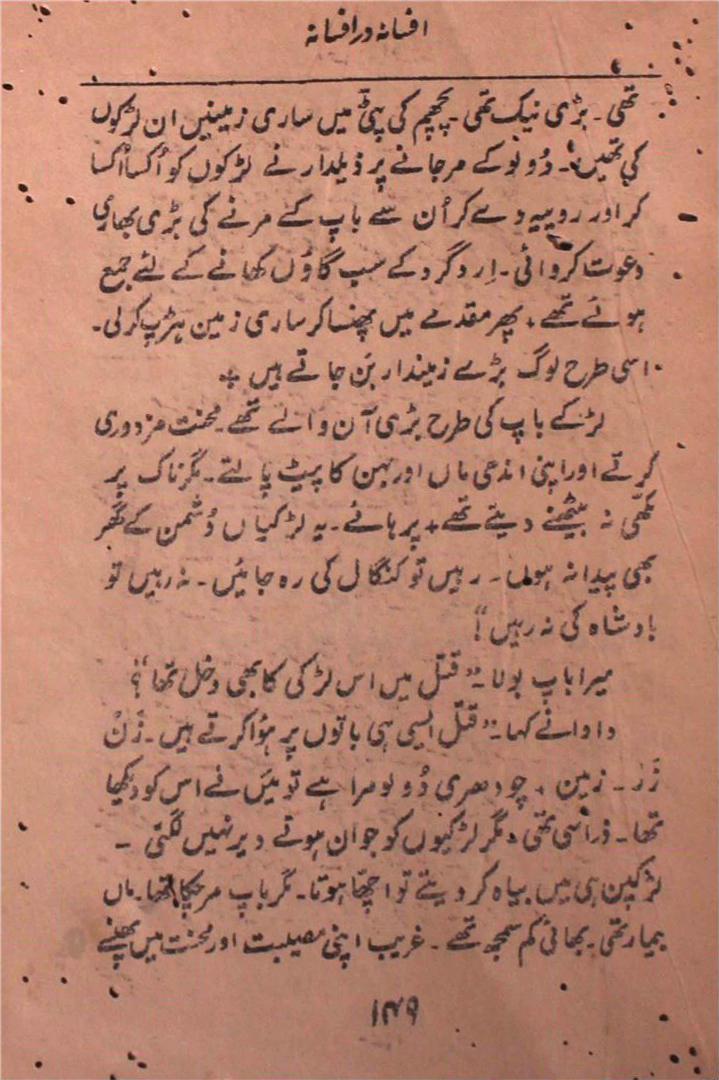 افسانہ در افسانہ
تھی۔ بڑی نیک تھی۔ پچھم کی پٹی میں ساری زمینیں ان لڑکوں
کی تھیں۔ دُولو کے مرجانے پر ذیلدار نے لڑکوں کو اُکسا اُکسا
کر اور روپیہ دے کر اُن سے باپ کے مرنے کی بڑی بھاری
دعوت کروائی۔ اِردگرد کے سب گاؤں کھانے کے لئے جمع
ہوئے تھے، پھر مقدمے میں پھنسا کر ساری زمین ہڑپ کرلی۔
اسی طرح لوگ بڑے زمیندار بن جاتے ہیں ۔
لڑکے باپ کی طرح بڑی آن والے تھے۔ محنت مزدوری
کرتے اور اپنی اندھی ماں اور بہن کا پیٹ پالتے۔ مگر ناک پر
مکھی نہ بیٹھنے دیتے تھے۔ پر ہائے۔ یہ لڑکیاں دُشمن کے گھر
بھی پیدا نہ ہوں۔ رہیں تو کنگال کی رہ جائیں۔ نہ رہیں تو
بادشاہ کی نہ رہیں"!
میرا باپ بولا۔ "قتل میں اس لڑکی کا بھی دخل تھا"؟
داوانے کہا۔ "قتل ایسی ہی باتوں پر ہؤا کرتے ہیں۔ زَنْ
زَر۔ زمین ، چودھری دُولو مرا ہے تو میَں نے اس کو دیکھا
تھا۔ ذرا سی تھی، مگر لڑکیوں کو جوان ہوتے دیر نہیں لگتی ۔
لڑکپن ہی میں بیاہ کر دیتے تو اچھا ہوتا۔ مگر باپ مرچکا تھا۔ ماں
بیمار تھی۔ بھائی کم سمجھ تھے ۔ غریب اپنی مصیبت اور محنت میں پھنسے
۱۴۹